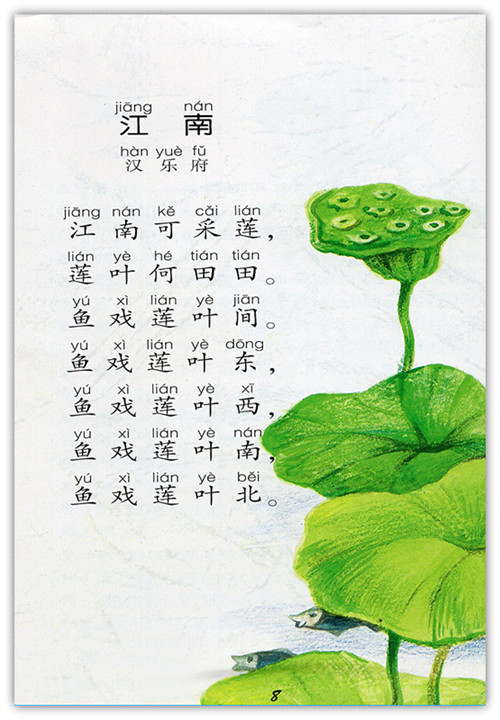 jiāng nán
江 南
hàn yuè fǔ
汉 乐 府
jiāng nán kě cǎi lián
江 南 可 采 莲，
lián yè hé tián tián
莲 叶 何 田 田。
yú xì lián yè jiān
鱼 戏 莲 叶 间。
yú xì lián yè dōng
鱼 戏 莲 叶 东，
yú xì lián yè xī
鱼 戏 莲 叶 西，
yú xì lián yè nán
鱼 戏 莲 叶 南，
yú xì lián yè běi
鱼 戏 莲 叶 北。
8